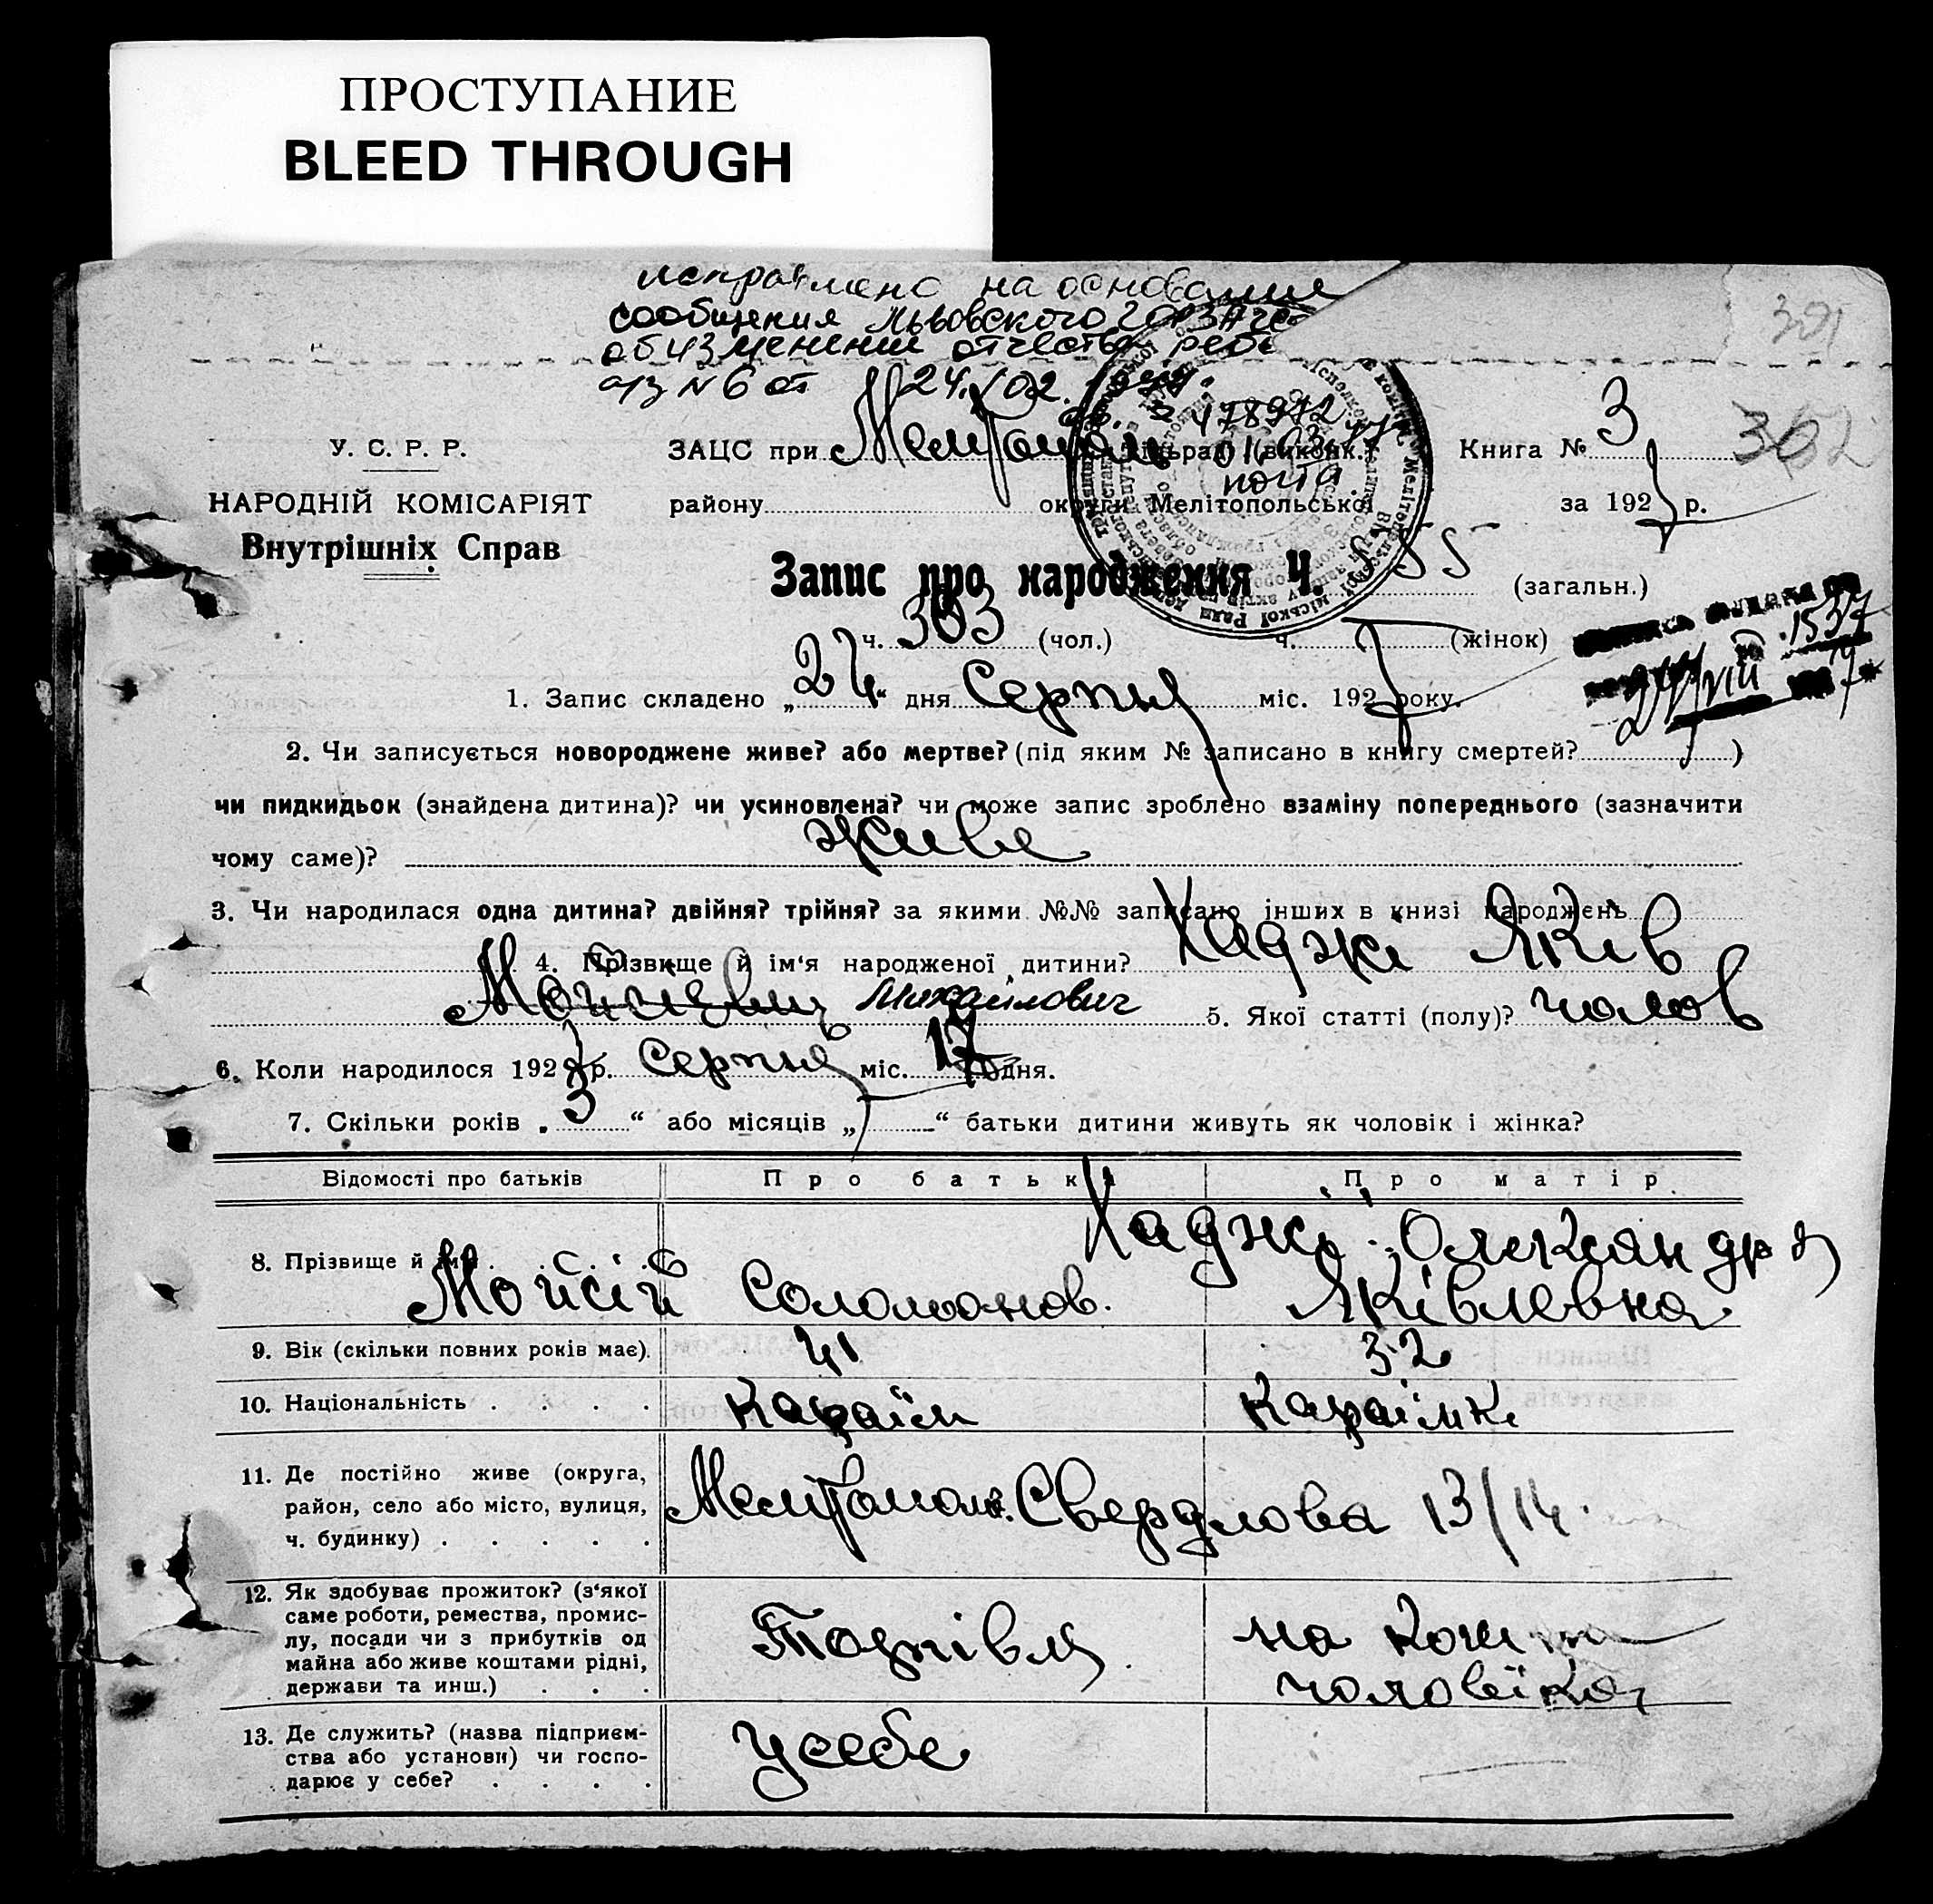 ПРОСТУПАНИЕ
BLEED THROUGH
исправлено на основании
сообщения Львовского
об изменении отчества
а/з № 6 от 24/02.
478972
почта
301
У. С. Р. Р.
ЗАЦС при Мелітополь (виконк.)
Книга № 3
362
НАРОДНІЙ КОМІСАРІЯТ
району округи Мелітопольської
за 192 р.
Внутрішніх Справ
Запис про народження Ч. 555 (загальн.)
ч. 303 (чол.) ч. (жінок)
1537
1. Запис складено „24“ дня Серпня міс. 192 року.
2. Чи записується новороджене живе? або мертве? (під яким № записано в книгу смертей? )
чи пидкидьок (знайдена дитина)? чи усиновлена? чи може запис зроблено взаміну попереднього (зазначити
чому саме)? живе
3. Чи народилася одна дитина? двійня? трійня? за якими №№ записано інших в книзі народжень
4. Прізвище й ім‘я народженої дитини? Хаджі Яків
Мойсіевич Михайлович 5. Якої статті (полу)? чолов
6. Коли народилося 192 р. Серпня міс. дня.
7. Скільки років „3“ або місяців „ “ батьки дитини живуть як чоловік і жінка?
Відомості про батьків Про батька Про матір
8. Прізвище й ім‘я Хаджі Олександра
Мойсій Соломонов. Яківлевна
9. Вік (скільки повних років має). 41 32
10. Національність . . . . Караїм Караїмка
11. Де постійно живе (округа,
район, село або місто, вулиця, Мелітополь. Свердлова 13/14.
ч. будинку) . . . . .
12. Як здобуває прожиток? (з‘якої
саме роботи, ремества, промис-
лу, посади чи з прибутків од Торгівля на кошти
майна або живе коштами рідні,
держави та инш.) . . . чоловіка
13. Де служить? (назва підприєм-
ства або установи) чи госпо- у себе
дарює у себе? . . . .